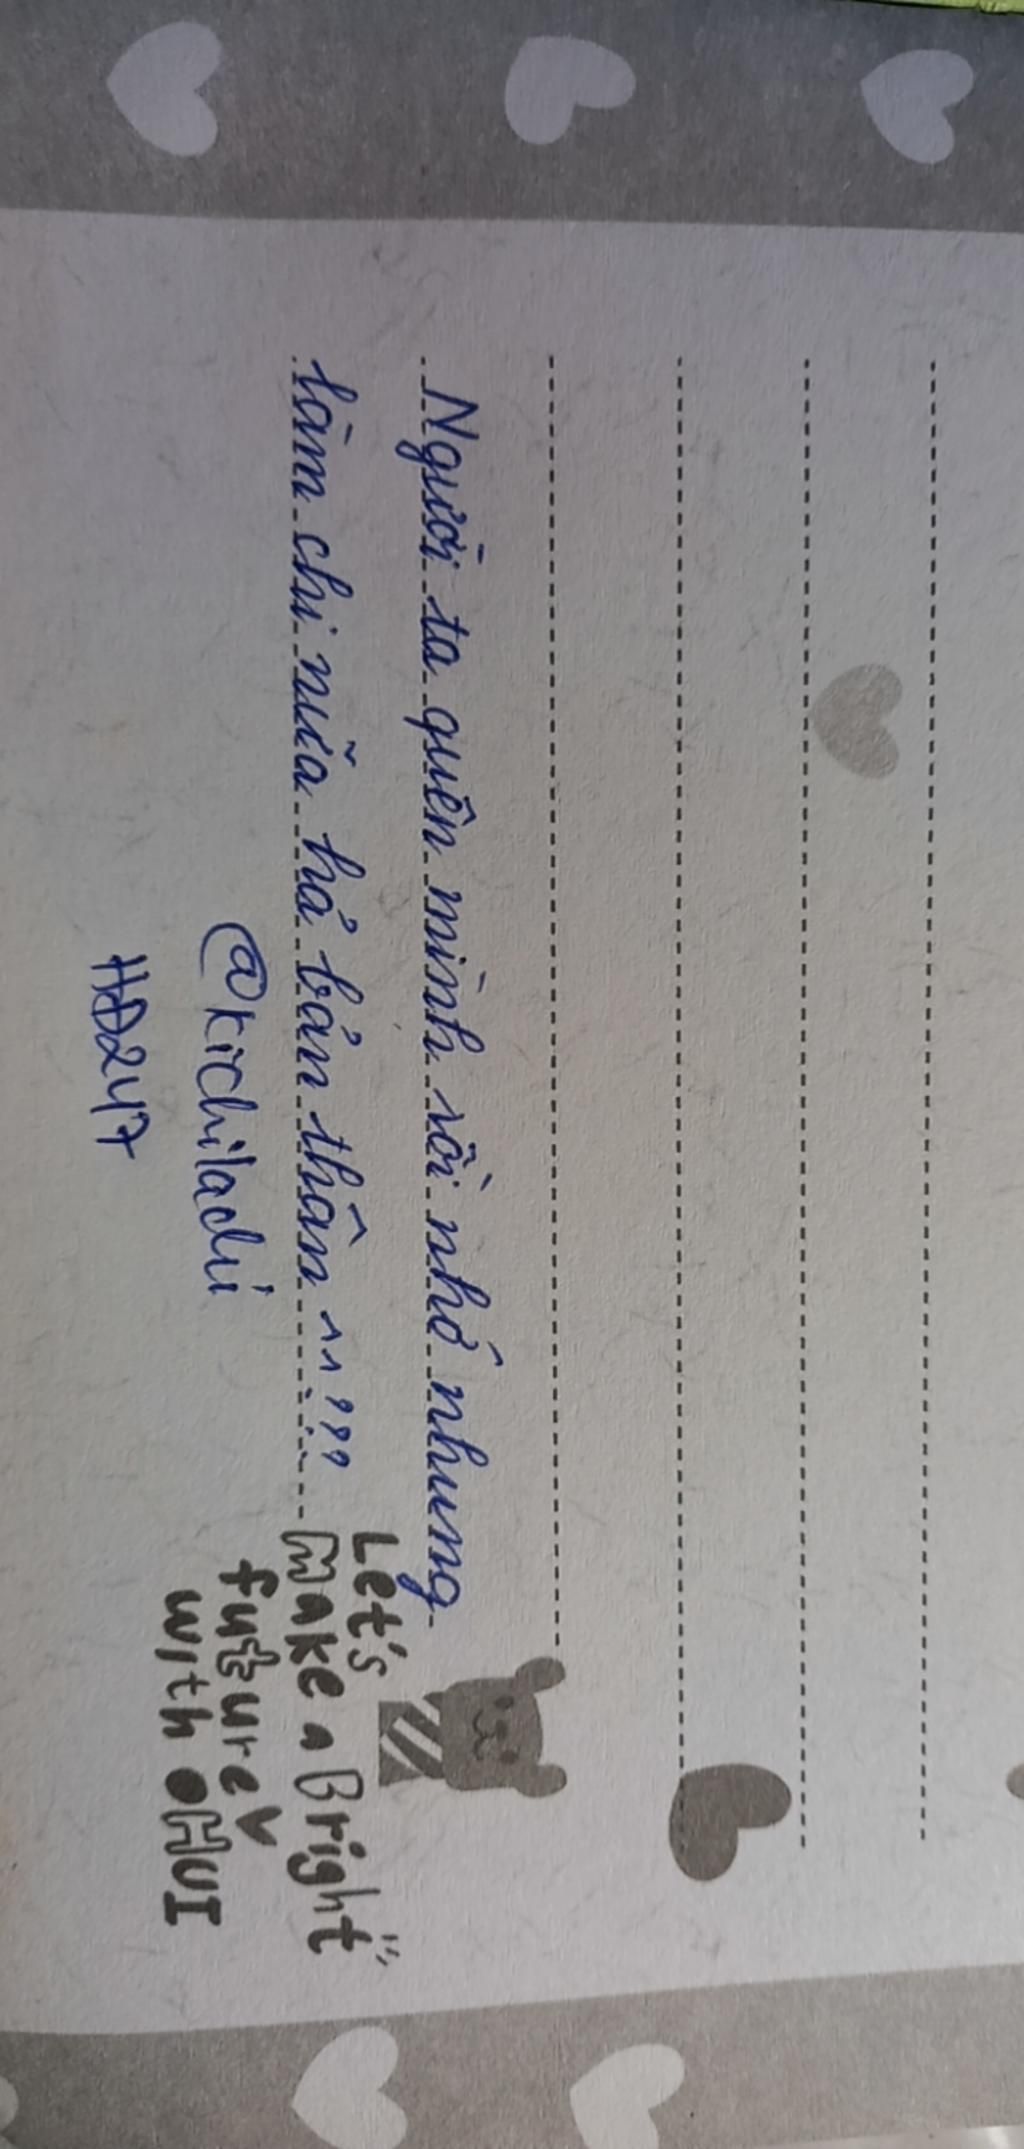 Người ta quên mình rồi nhớ nhung
làm chi nữa hả bản thân ^^!???
@kichiladi
HĐ247
Let's
Make a Bright
future
with OHUI